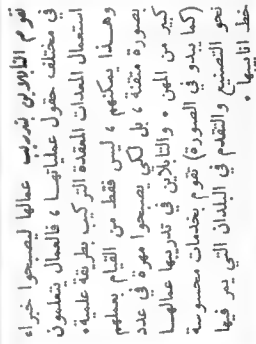 تقوم التابلاين بتدريب عمالها ليصبحوا خبراء
في مختلف حقول عملياتها ، فالعمال يتعلمون
استعمال المعدات المعقدة التركيب بطريقة علمية .
وهذا يمكنهم ، ليس فقط من القيام بعملهم
بصورة متقنة ، بل لكي يصبحوا مهرة في عدد
كبير من المهن . والتابلاين في تدريبها عمالها
(كما يبدو في الصورة) تقوم بخدمات محسوسة
نحو التصنيع والتقدم في البلدان التي يمر فيها
خط انابيبها .